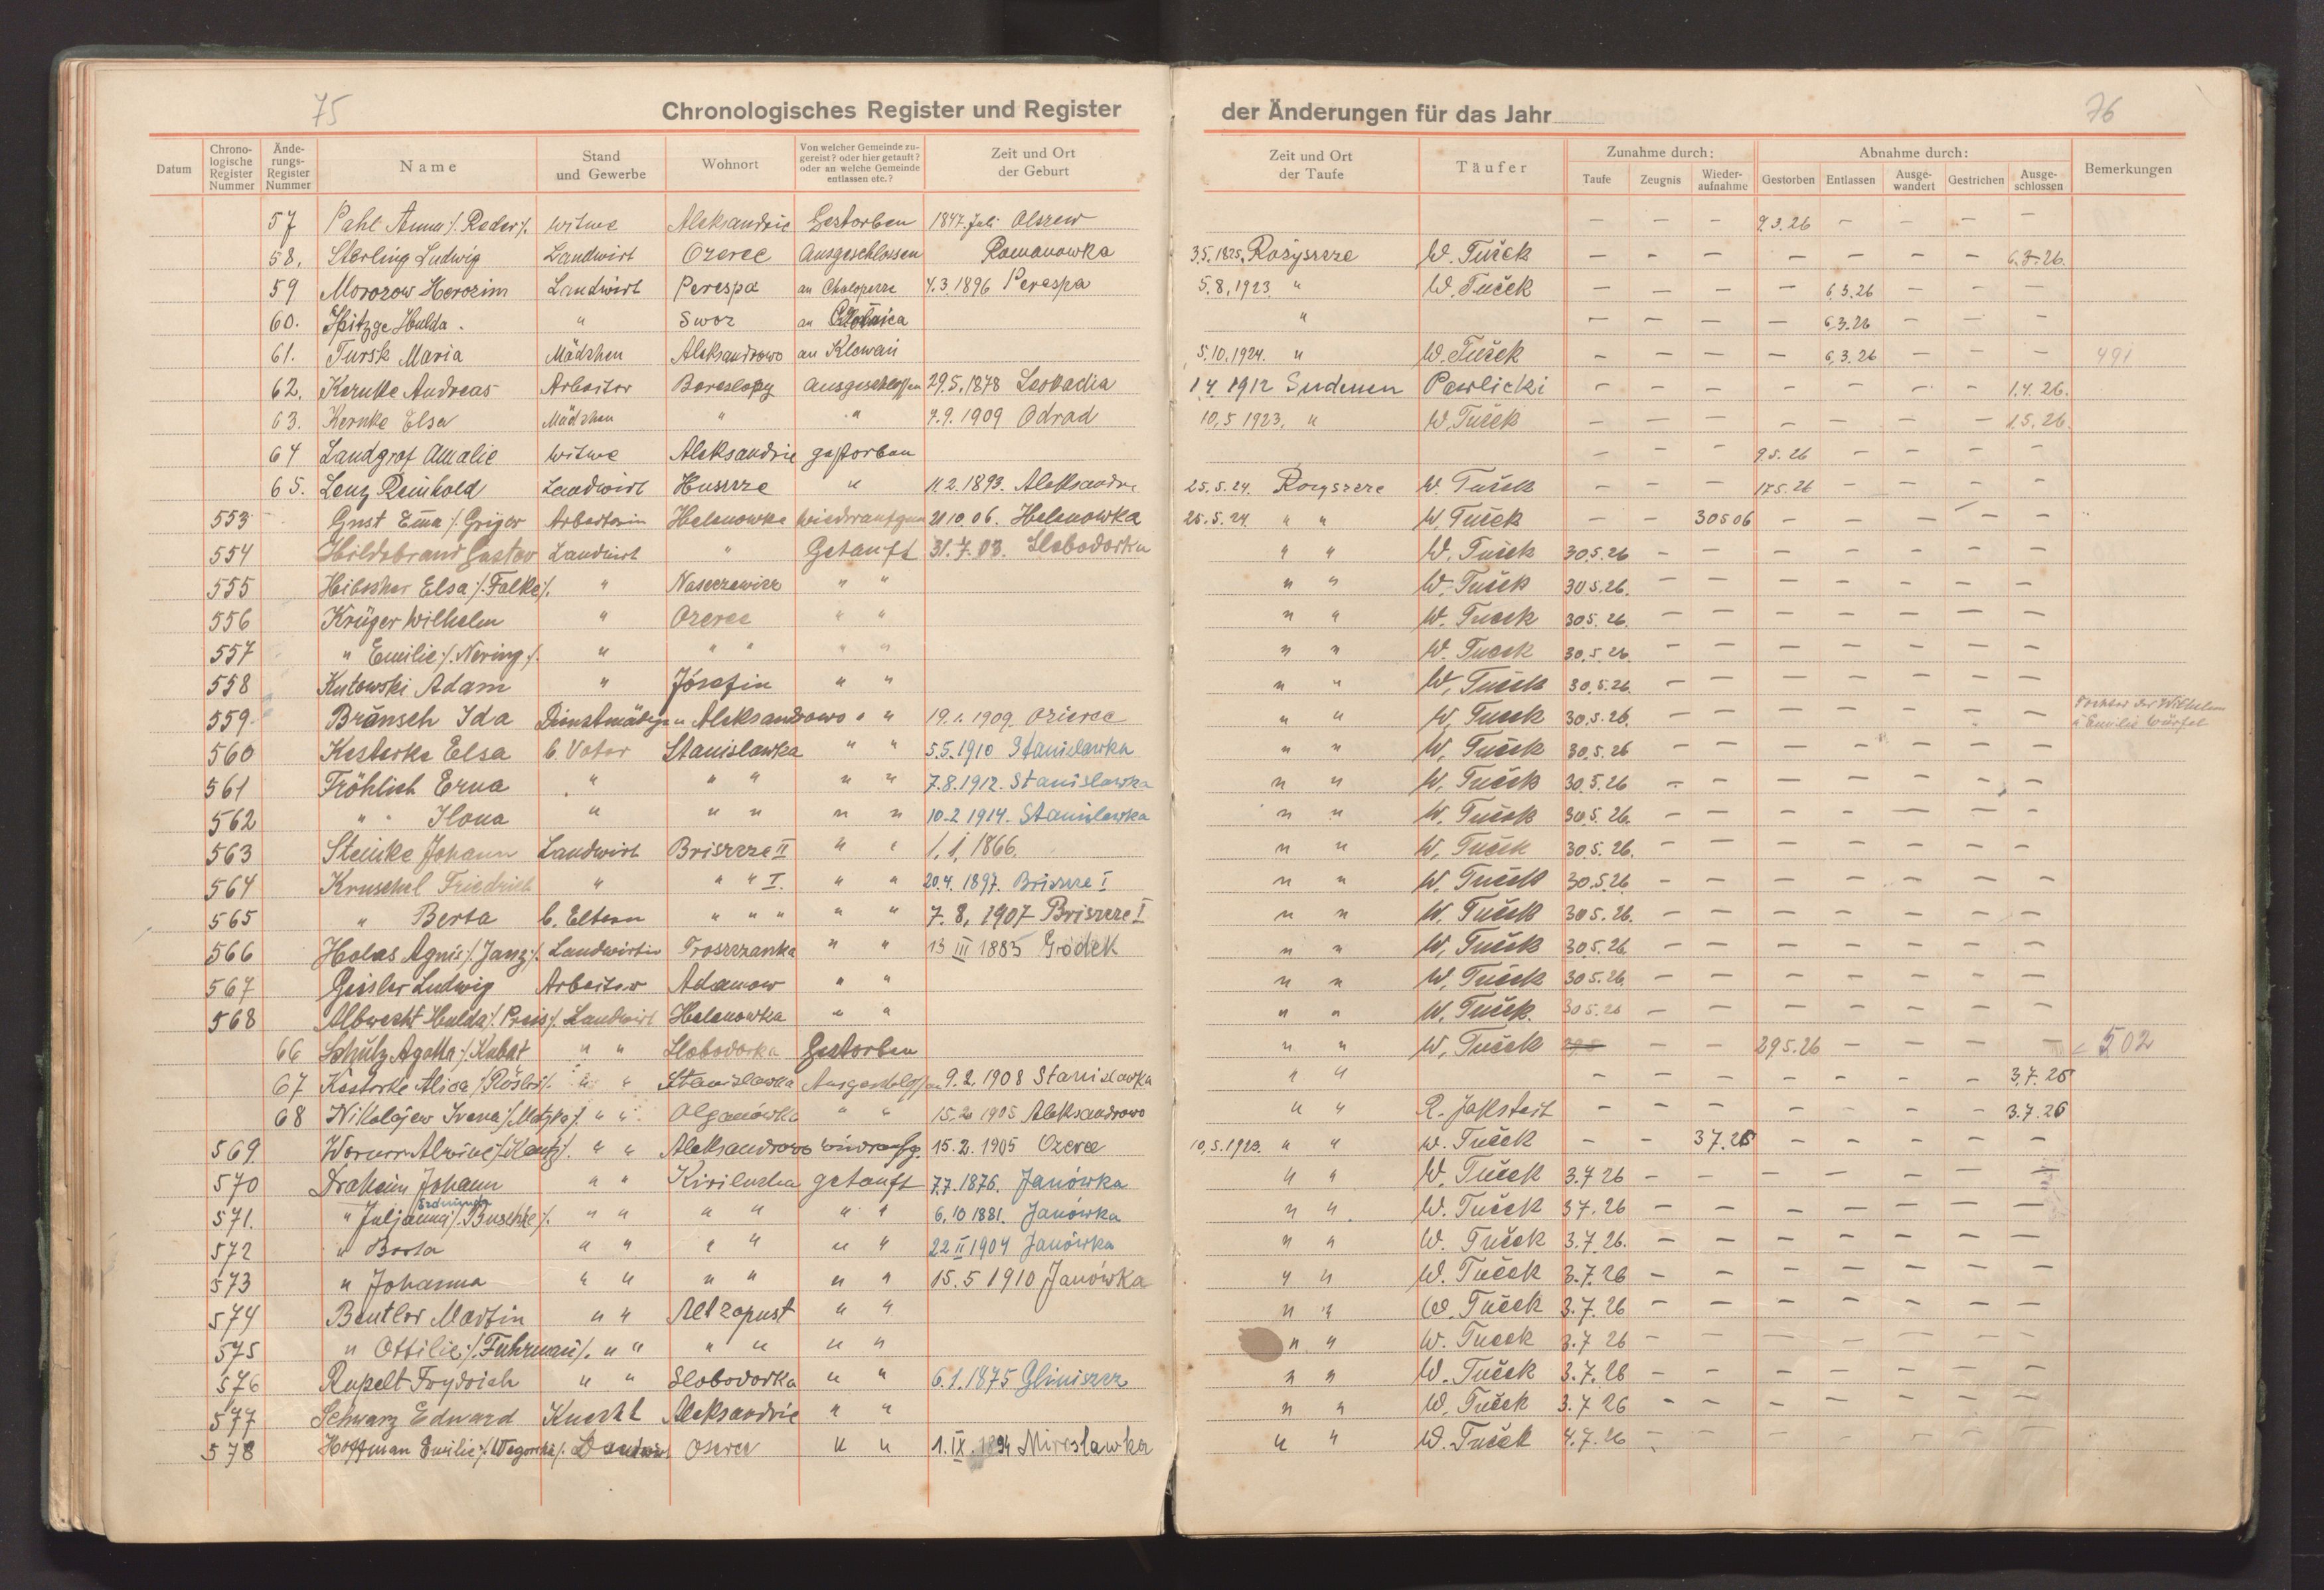 75
Chronologisches Register und Register der Änderungen für das Jahr
76
Datum
Chrono-logische Register Nummer
Ände-rungs-Register Nummer
Name
Stand und Gewerbe
Wohnort
Von welcher Gemeinde zu-gereist? oder hier getauft? oder an welche Gemeinde entlassen etc.?
Zeit und Ort der Geburt
Zeit und Ort der Taufe
Täufer
Zunahme durch:
Taufe
Zeugnis
Wieder-aufnahme
Abnahme durch:
Gestorben
Entlassen
Ausge-wandert
Gestrichen
Ausge-schlossen
Bemerkungen
57 Pahl Anna /. Rader /. Witwe Aleksandrie Gestorben 1847. Juli Olszew — — — 9.3.26 — — — —
58. Sterling Ludwig Landwirt Ozeree Ausgeschlossen Romanowka 3.5.1825. Rożyszcze W. Tuček — — — — — — — 6.3.26.
59 Morozow Herozim Landwirt Perespa an Cholopecze 4.3.1896 Perespa 5.8.1923. " W. Tuček — — — — 6.3.26 — — —
60. Spitzge Hulda. " Swoz an " — — — — 6.3.26 — — —
61. Tursk Maria Mädchen Aleksandrowo an Klewań 5.10.1924. " W. Tuček — — — — 6.3.26 — — — 491
62. Kernke Andreas Arbeiter Bereslopy ausgeschlossen 29.5.1878 Leokadia 14 1912 Sudenen Pawlicki — — — — — — — 1.4.26.
63. Kernke Elsa Mädchen " " 7.9.1909 Odrad 10.5 1923. " W. Tuček — — — — — — — 1.5.26.
64 Landgraf Amalie Witwe Aleksandrie gestorben — — — 9.5.26 — — — —
65. Lenz Reinhold Landwirt Huszcze " 11.2.1893. Aleksandr. 25.5.24. Rozyszcze W. Tuček — — — 17.5.26 — — — —
553 Gust Ema /. Griger Arbeiterin Helenowka 21 10. 06. Helenowka 25.5.24 " " W. Tuček — — 30 5 06 — — — — —
554 Hildebrand Gustav Landwirt " Getauft 31.7.03. Slobodorka " " W. Tuček 30.5.26 — — — — — — —
555 Elsa /. Falke /. " Naserzewicz " " " " W. Tuček 30.5.26. — — — — — — —
556 Krüger Wilhelm " Ozeree " " " " W. Tucek 30.5.26. — — — — — — —
557 " Emilie /. Nering /. " " " " " " " W. Tucek 30.5.26. — — — — — — —
558 Kutowski Adam " Józefin " " " " W. Tuček 30.5.26. — — — — — — —
559 Bränsch Ida Aleksandrowo " " 19.1.1909. Ozieree " " W. Tucek 30.5.26. — — — — — — — Tochter des Wilhelm u Emilie Würfel
560 Kesterke Elsa b. Vater Stanislawka " " 5.5.1910 Stanislawka " " W. Tuček 30.5.26 — — — — — — —
561 Fröhlich Erna " " " " " 7.8.1912. Stanislawka " " W. Tuček 30.5.26 — — — — — — —
562 " " Ilona " " " " " 10.2 1914. Stanislawka " " W. Tucek 30.5.26. — — — — — — —
563 Steinke Johann Landwirt Briszcze II " " 1.1.1866. " " W. Tuček 30.5.26. — — — — — — —
564 Kruschel Friedrich " " " I. " " 20.4.1897. Briszcze I " " W. Tuček 30.5.26 — — — — — — —
565 " Berta b. Eltern " " " " " 7.8.1907 Briszcze I " " W. Tuček 30.5.26. — — — — — — —
566 Holas Agnis /. Janz /. Landwirtin Troszczanka " " 13 III 1885 Gródek " " W. Tuček 30.5.26. — — — — — — —
567 Geisler Ludwig Arbeiter Adamow " " " " W. Tuček 30.5.26. — — — — — — —
568 Albrecht Hulda /. Preis /. Landwirt Helenowka " " " " W. Tuček. 30.5.26 — — — — — — —
66 Schulz Agatta /. Kubat " " Slobodorka Gestorben " " W. Tuček — — 29.5.26 — — — — 502
67 Kesterke Alisa /. Rösler /. " " Stanislawka Ausgeschlossen 9.2.1908 Stanislawka " " — — — — — — — 3.7.26
68 Nikolajew Irena /. Matzka /. " " Olganówka " " 15.2 1905 Aleksandrowo " " R. Jaksteit — — — — — — — 3.7.26
569. Alwine " " Aleksandrowo 15.2.1905 Ozeree 10.5.1923. " " W. Tuček — — 3 7.26 — — — — —
570 Draheim Johann " " Kirilucha getauft 7.7.1876. Janówka " " W. Tuček 3.7 26 — — — — — — —
571. " Juljanna /. Buschke /. " " " " " " 6.10 1881. Janówka " " W. Tuček 3 7.26 — — — — — — —
572 " Berta " " " " " " 22 II 1904 Janówka " " W. Tuček 3.7.26. — — — — — — —
573 " Johanna " " " " " " 15.5 1910 Janówka " " W. Tuček 3.7.26 — — — — — — —
574 Beutler Martin " " Altzapust " " " " W. Tuček 3.7.26 — — — — — — —
575 " Ottilie /. Fuhrman /. " " " " " " " " W. Tucek 3.7 26 — — — — — — —
576 Rupelt Frydrich " " Slobodorka " " 6.1.1875 Gliniszcz " " W. Tuček 3.7.26 — — — — — — —
577 Schwarz Edward Knecht Aleksandrie " " " " W. Tuček 3.7 26 — — — — — — —
578 Hoffman Emilie Oseree " " 1.IX.1894 Miroslawka " " W. Tuček 4.7.26 — — — — — — —